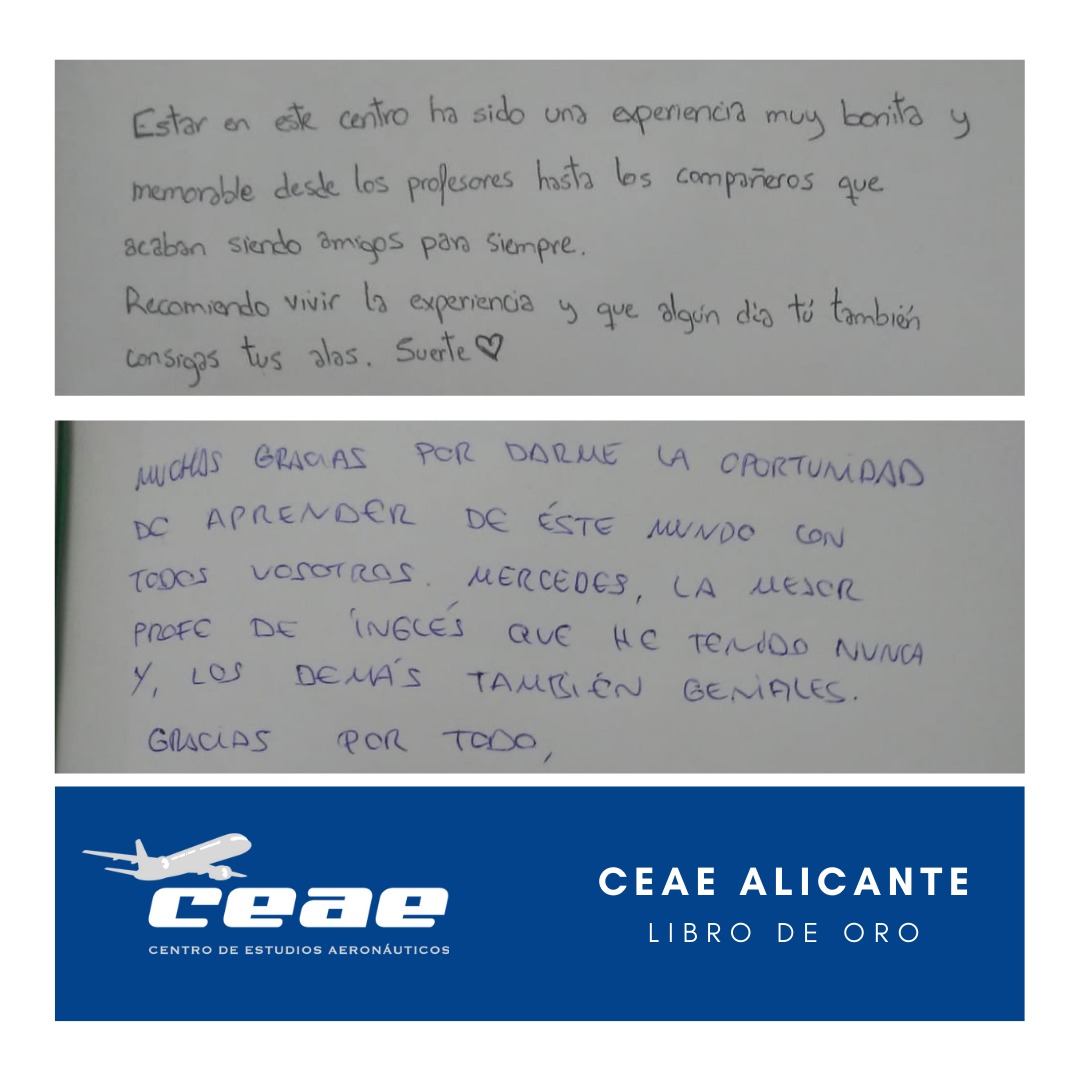 Estar en este centro ha sido una experiencia muy bonita y
memorable desde los profesores hasta los compañeros que
acaban siendo amigos para siempre.
Recomiendo vivir la experiencia y que algún día tú también
consigas tus alas. Suerte ♡
MUCHAS GRACIAS POR DARME LA OPORTUNIDAD
DE APRENDER DE ÉSTE MUNDO CON
TODOS VOSOTROS. MERCEDES, LA MEJOR
PROFE DE INGLÉS QUE HE TENIDO NUNCA
Y, LOS DEMÁS TAMBIÉN GENIALES.
GRACIAS POR TODO,
ceae
CENTRO DE ESTUDIOS AERONÁUTICOS
CEAE ALICANTE
LIBRO DE ORO